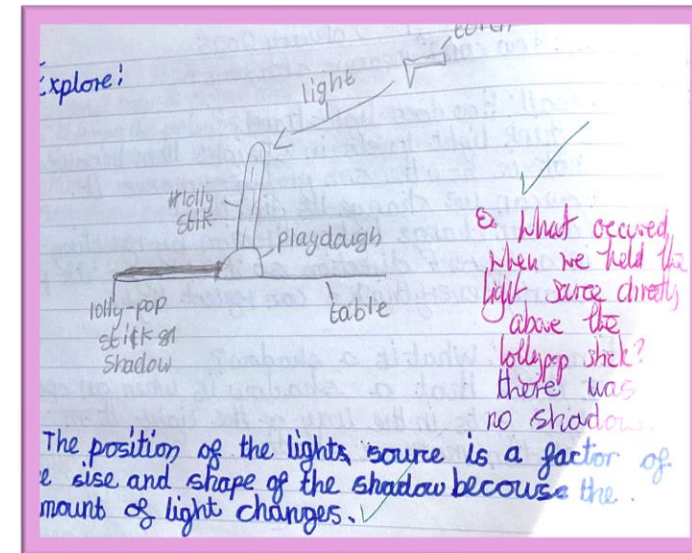 Explore:
torch
light
lolly
stik
playdough
lolly-pop
stick
Shadow
table
Q. What occured
when we held the
light source directly
above the
lollypop stick?
there was
no shadow.
The position of the lights source is a factor of
sise and shape of the shadow becouse the
mount of light changes.